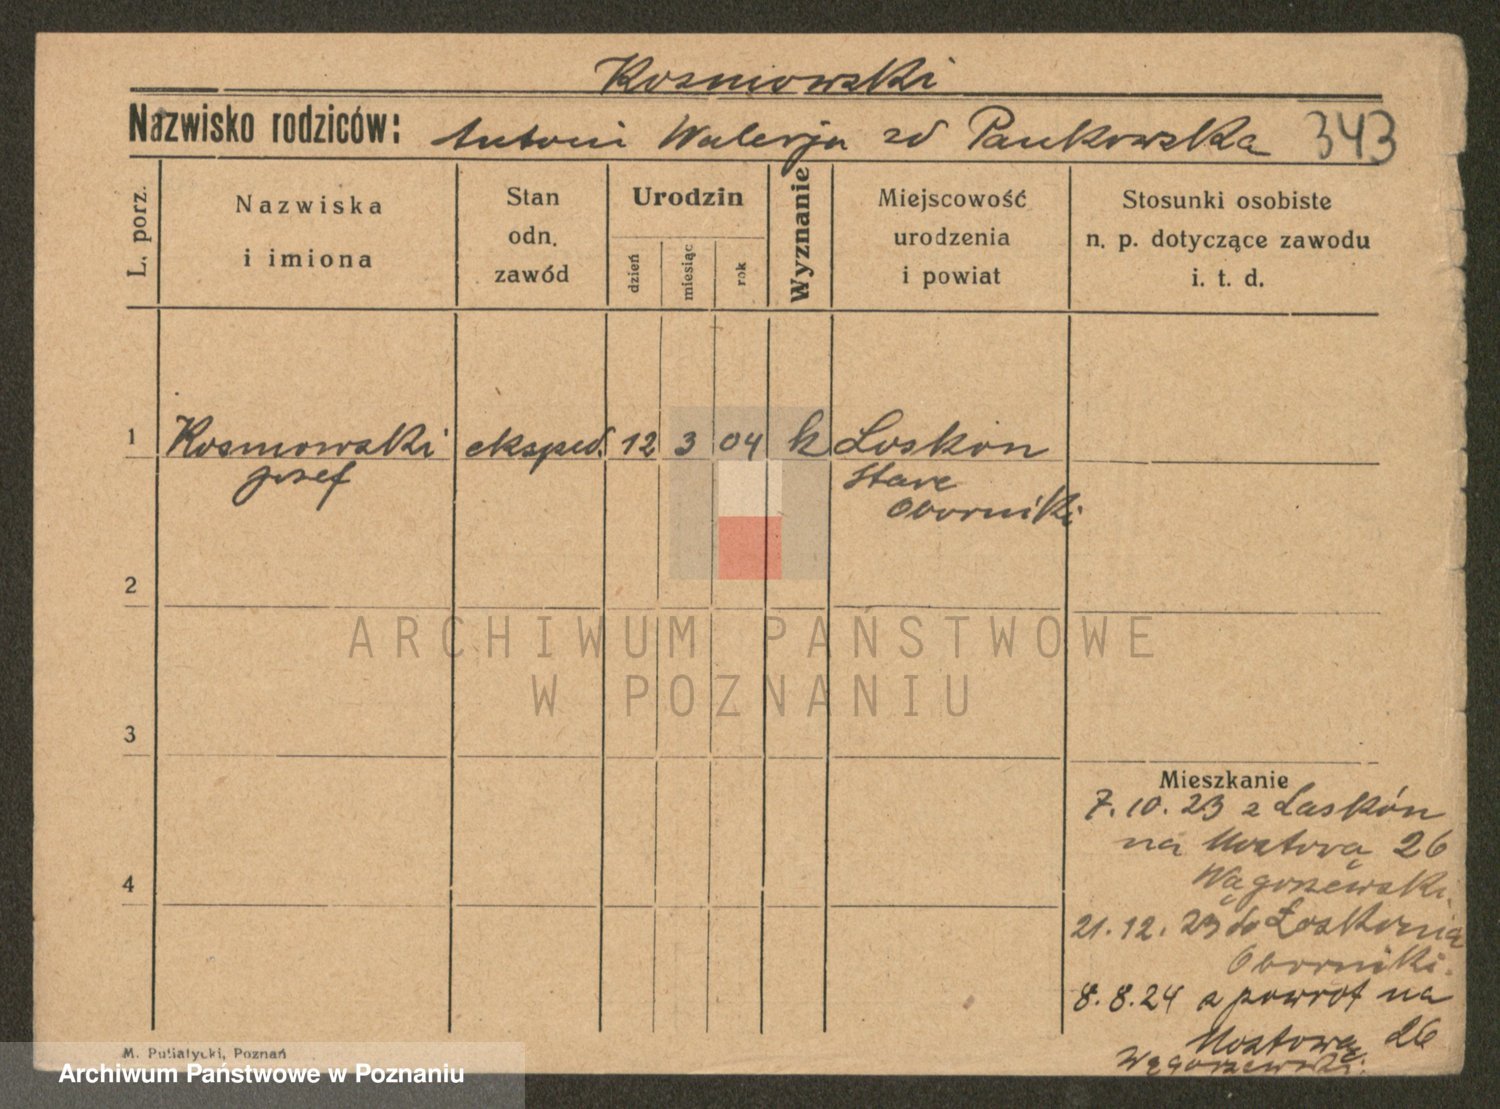 Kosmowski
Nazwisko rodziców: Antoni Walerja zd Pankowska 343
L. porz.
Nazwiska
i imiona
Stan
odn.
zawód
Urodzin
dzień
miesiąc
rok
Wyznanie
Miejscowość
urodzenia
i powiat
Stosunki osobiste
n. p. dotyczące zawodu
i. t. d.
1 Kosmowski eksped. 12 3 04 k Loskon
Josef Stare
Oborniki
2
ARCHIWUM PAŃSTWOWE
W POZNANIU
3
Mieszkanie
7.10.23 z Laskón
na Mostową 26
Wągorzewski.
4
21.12.23 do Łoskonia
Oborniki.
8.8.24 z powrot na
Mostową 26
Wągorzewski.
M. Putiatycki, Poznań
Archiwum Państwowe w Poznaniu